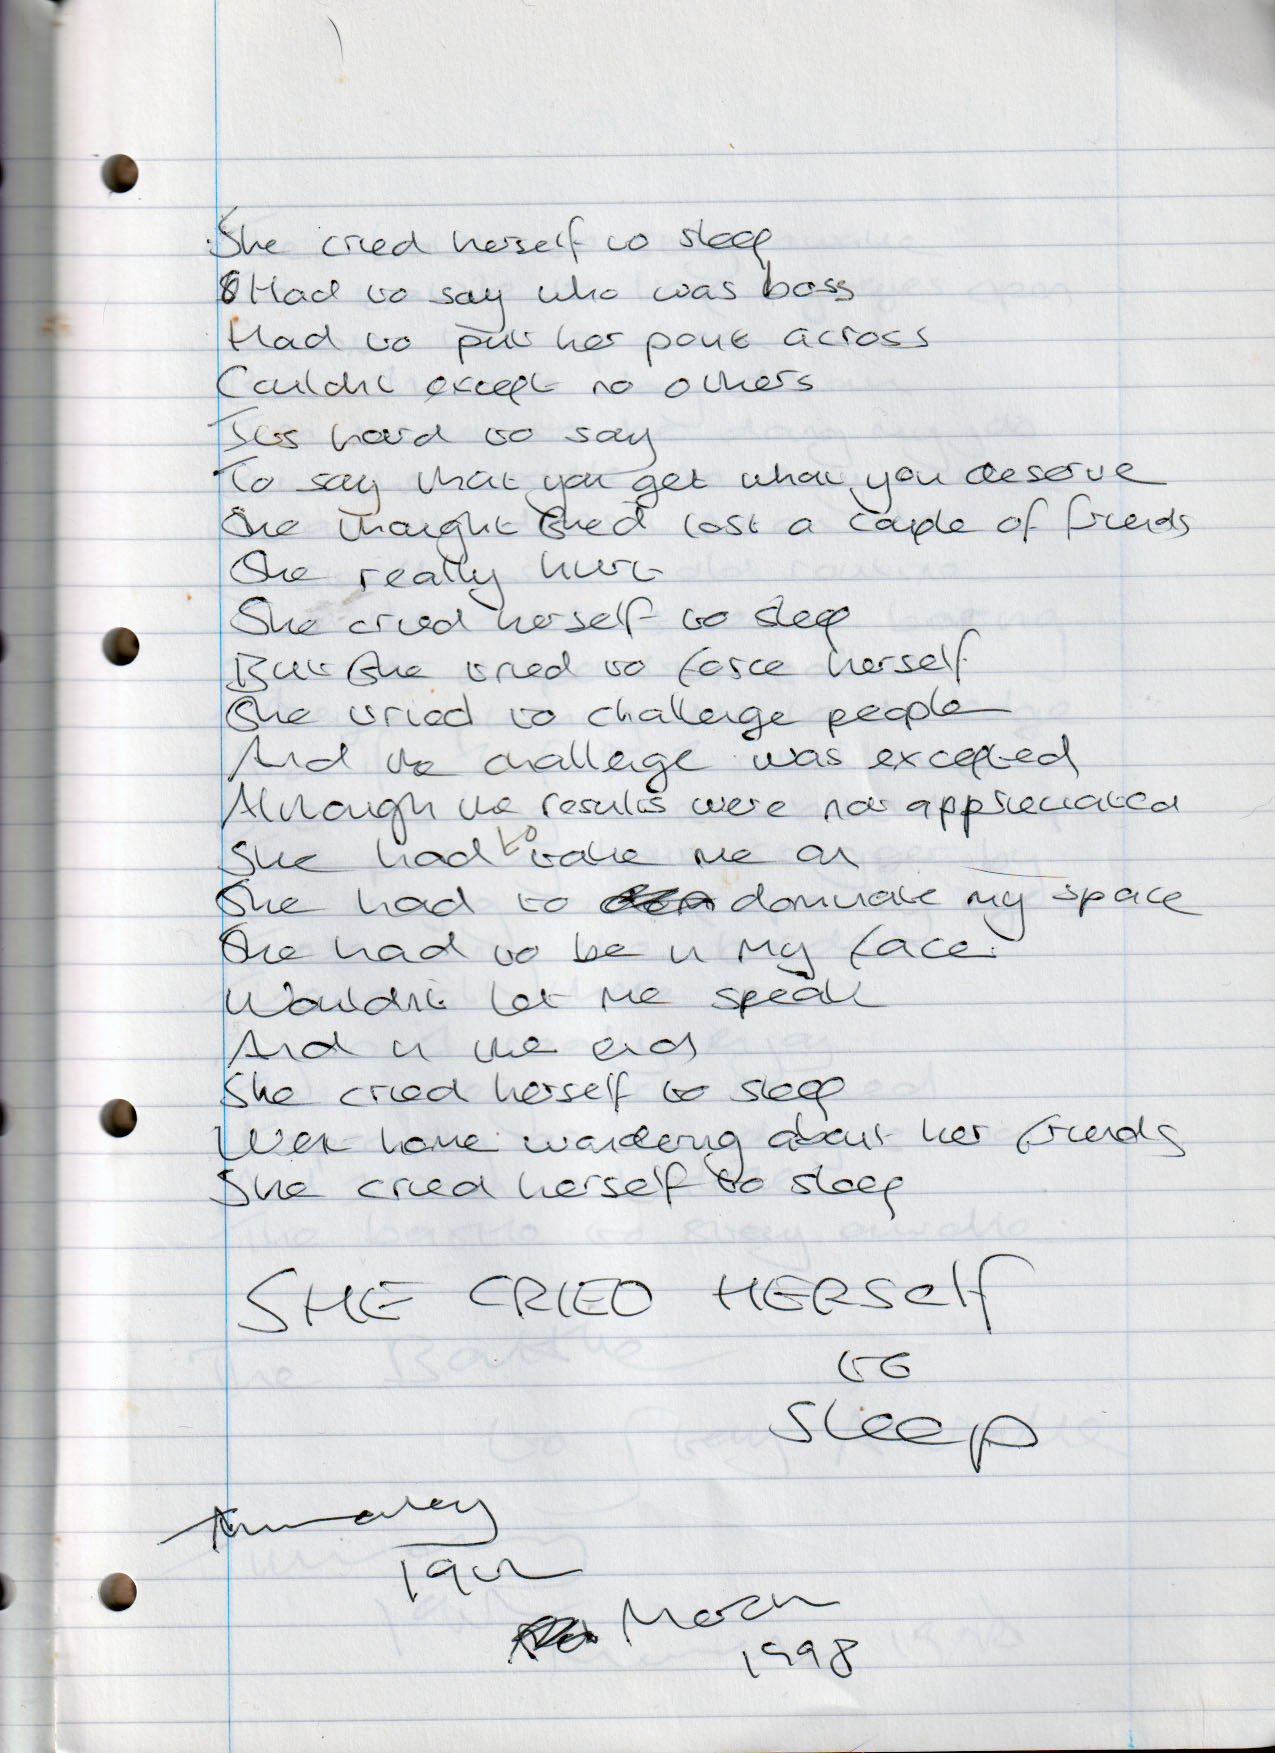 She cried herself to sleep
Had to say who was boss
Had to put her point across
Couldnt except no others
Its hard to say
To say that you get what you deserve
She thought shed lost a couple of friends
She really hurt
She cried herself to sleep
But she tried to force herself
She tried to challenge people
And the challenge was excepted
Although the results were not appreciated
She had to take me on
She had to dominate my space
She had to be in my face.
Wouldnt let me speak
And in the end
She cried herself to sleep
Went home wondering about her friends
She cried herself to sleep
SHE CRIED HERSelf
to
Sleep
Thursday
19th
March
1998